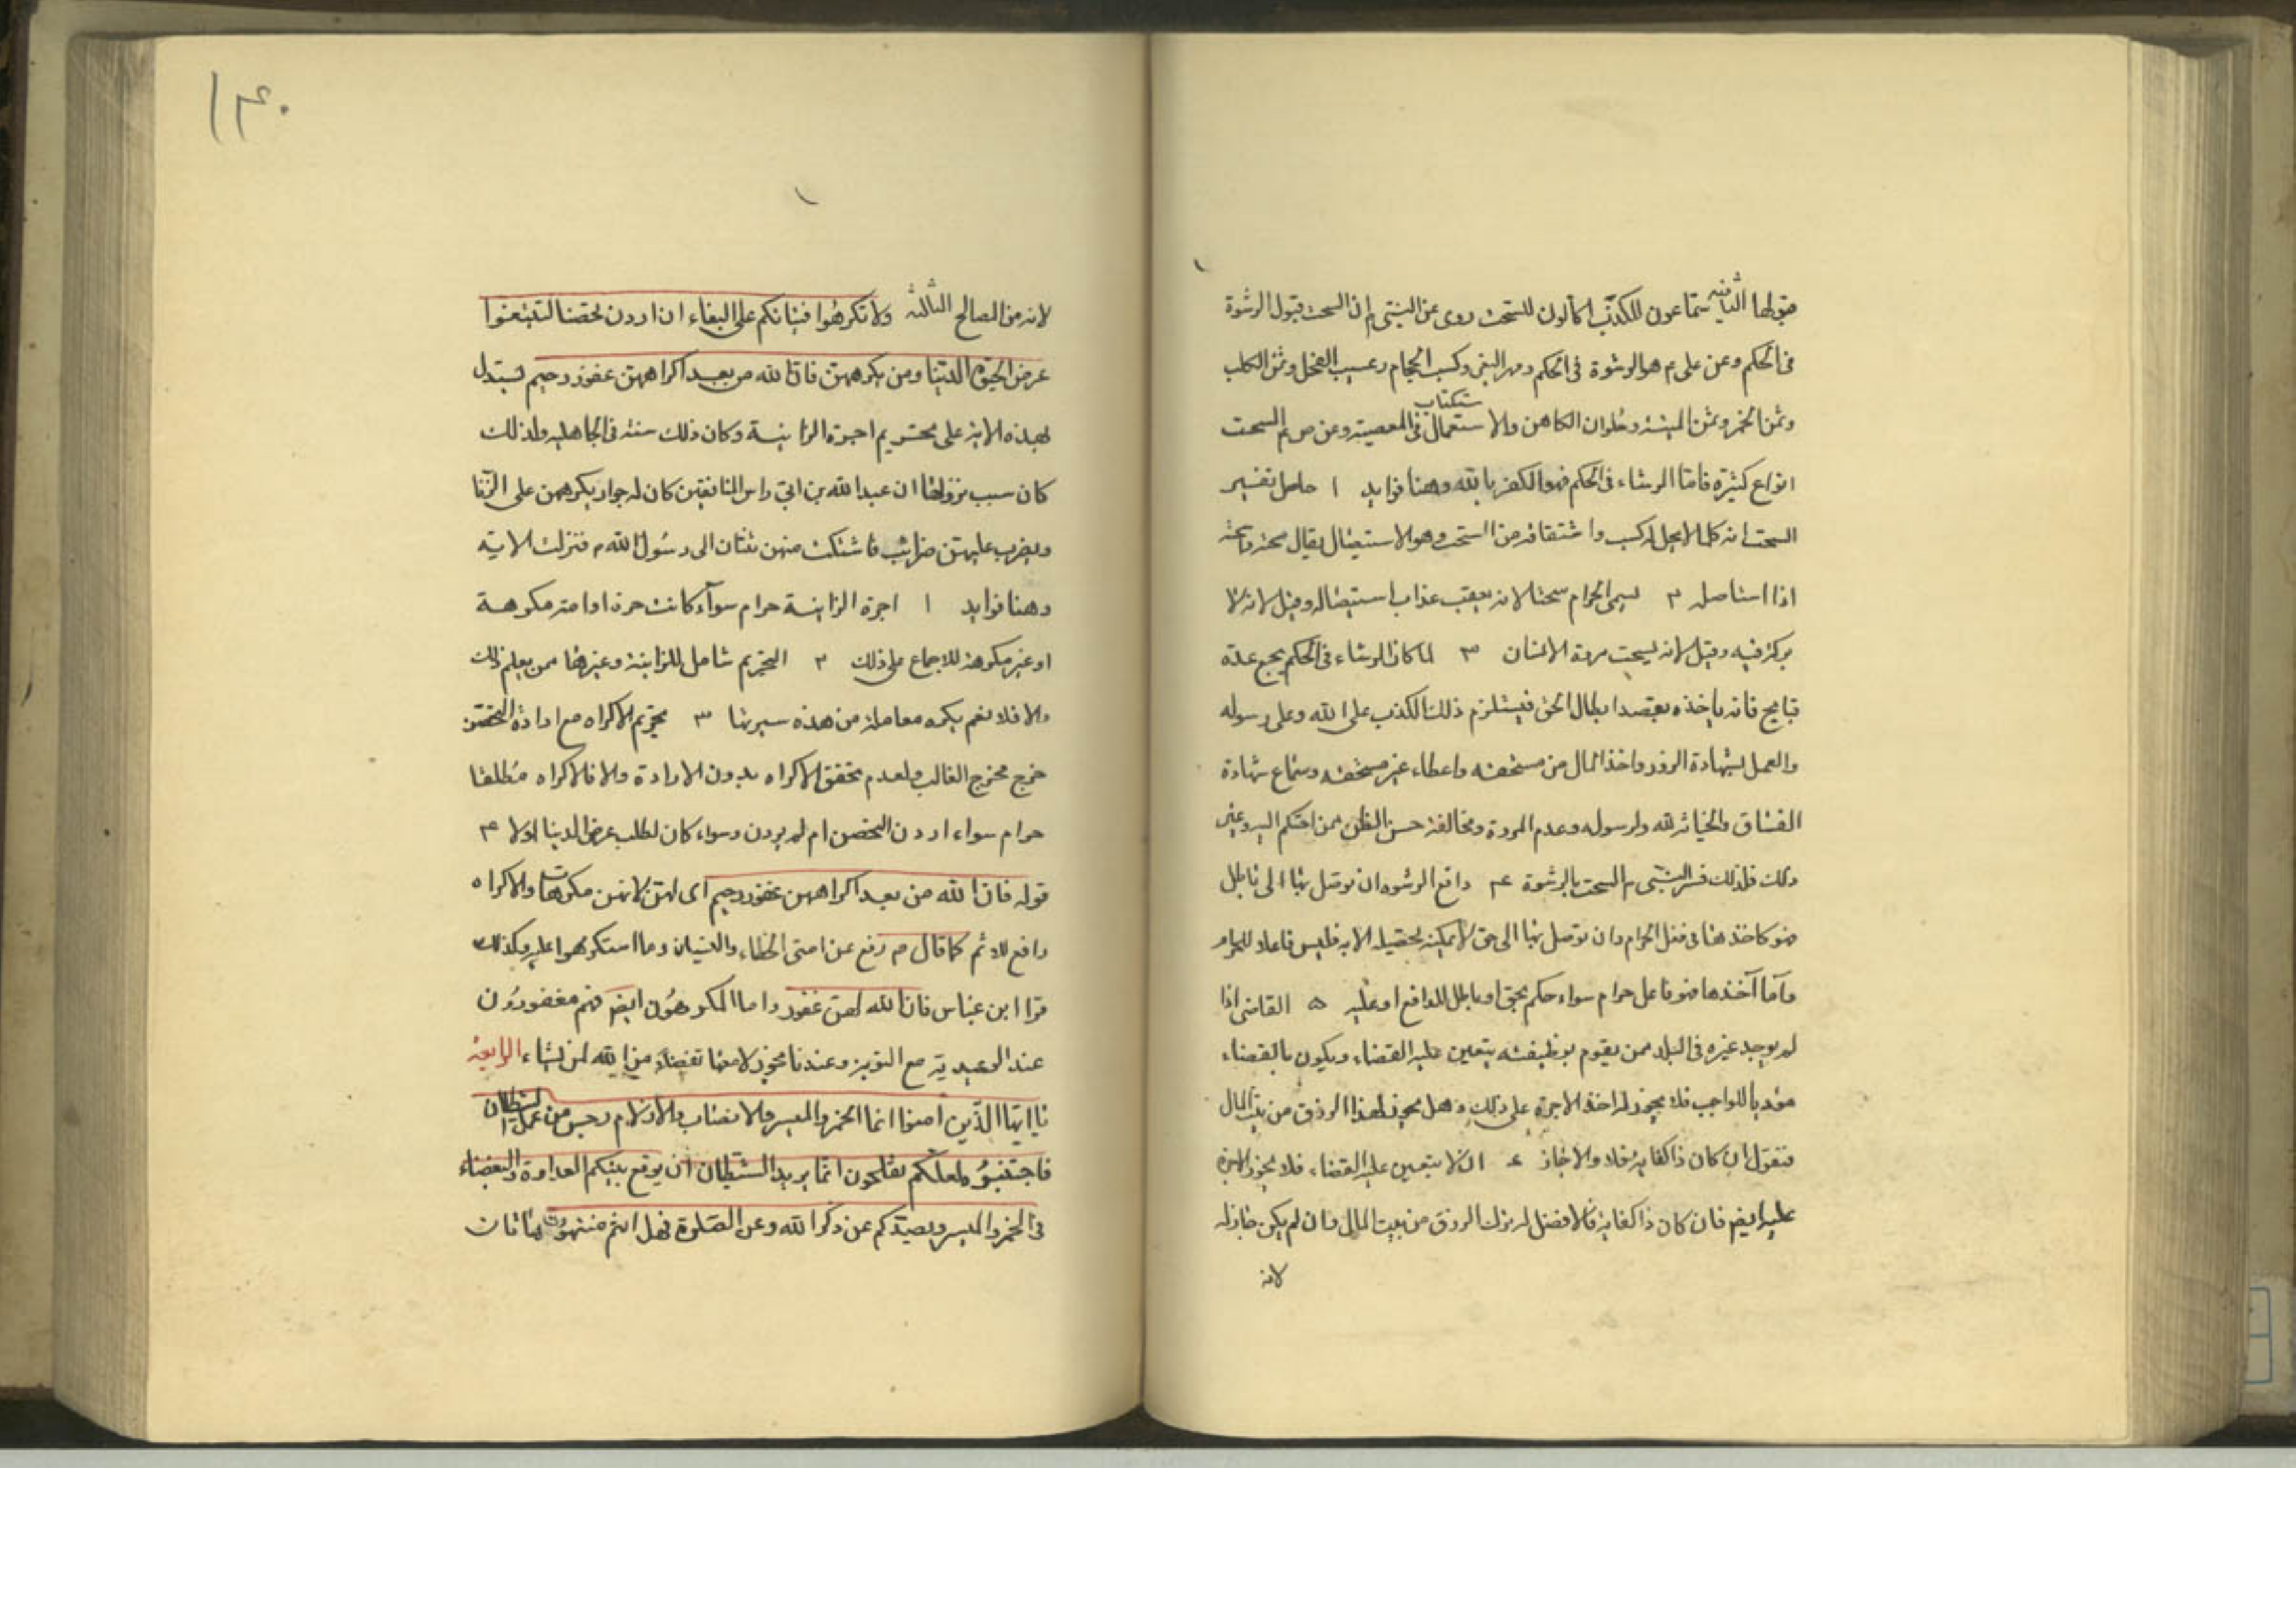 قبولها الثانية سماعون للكذب اكالون للسحت روى عن النبي ص ان السحت قبول الرشوة
فى الحكم وعن على ع هو الرشوة فى الحكم ومهر البغى وكسب الحجام وعسيب الفحل وثمن الكلب
وثمن الخمر وثمن الميتة وحلوان الكاهن والاستعمال فى المعصية وعن ص ع السحت
انواع كثيرة فاما الرشاء فى الحكم فهو الكفر بالله وهنا فوايد ١ حاصل تفسير
السحت انه كلما لا يحل كسبه واشتقاقه من السحت وهو الاستيصال يقال سحته واسحته
اذا استاصله ٢ يسمى الحرام سحتا لانه يعقب عذاب استيصال وقيل لانه لا
بركة فيه وقيل لانه يسحت مروة الانسان ٣ لما كان الرشاء فى الحكم يجمع عدة
قبايح فانه ياخذه بقصد ابطال الحق فيستلزم ذلك الكذب على الله وعلى رسوله
والعمل بشهادة الزور واخذ المال من مستحقه واعطاء غير مستحقه وسماع شهادة
الفساق والخيانة لله ولرسوله وعدم المروة ومخالفة حسن الظن ممن احتكم اليه وغير
ذلك فلذلك فسر النبى ص السحت بالرشوة ٤ دافع الرشوه ان توصل بها الى باطل
فهو كاخذها فى فعل الحرام وان توصل بها الى حق لا يمكنه تحصيله الا به فليس فاعلا للحرام
واما آخذها فهو فاعل حرام سواء حكم بحق او باطل للدافع او عليه ٥ القاضى اذا
لم يوجد غيره فى البلد ممن يقوم بوظيفته يتعين عليه القضاء ويكون بالقضاء
موديا للواجب فلا يجوز له اخذ الاجرة على ذلك وهل يجوز لهذا الرزق من بيت المال
فنقول ان كان ذا كفاية فلا والا جاز ٤ ان لا يتعين عليه القضاء فلا يجوز الاجرة
عليه ايضا فان كان ذا كفاية فالافضل له ترك الرزق من بيت المال وان لم يكن جاز له
لانه
١٤٠
لانه من المصالح الثالثه ولا تكرهوا فتياتكم على البغاء ان اردن تحصنا لتبتغوا
عرض الحيوة الدنيا ومن يكرههن فان الله من بعد اكراههن غفور رحيم يستدل
بهذه الاية على تحريم اجرة الزانية وكان ذلك سنة فى الجاهلية ولذلك
كان سبب نزولها ان عبد الله بن ابى راس المنافقين كان له جوار يكرههن على الزنا
ويضرب عليهن ضرائب فاشتكت منهن ثنتان الى رسول الله ص فنزلت الاية
وهنا فوايد ١ اجرة الزانية حرام سوآء كانت حرة او امة مكرهة
او غير مكرهة للاجماع على ذلك ٢ التحريم شامل للزانية وغيرها ممن يعلم ذلك
والا فلا نعم يكره معاملة من هذه سيرتها ٣ تحريم الاكراه مع ارادة التحصن
خرج مخرج الغالب ولعدم تحقق الاكراه بدون الارادة والا فالاكراه مطلقا
حرام سواء اردن التحصن ام لم يردن وسواء كان لطلب عرض الدنيا اولا ٤
قوله فان الله من بعد اكراههن غفور رحيم اى لهن لانهن مكرهات والاكراه
دافع للاثم كما قال ص رفع عن امتى الخطاء والنسيان وما استكرهوا عليه وكذلك
قرا ابن عباس فان الله لهن غفور واما المكرهون ايضا فهم مغفورون
عند الوعيدية مع التوبة وعندنا يجوز لا معها تفضلا من الله لمن يشاء الرابعة
يا ايها الذين امنوا انما الخمر والميسر والانصاب والازلام رجس من عمل الشيطان
فاجتنبوه لعلكم تفلحون انما يريد الشيطان ان يوقع بينكم العداوة والبغضاء
فى الخمر والميسر ويصدكم عن ذكر الله وعن الصلوة فهل انتم منتهون هاتان